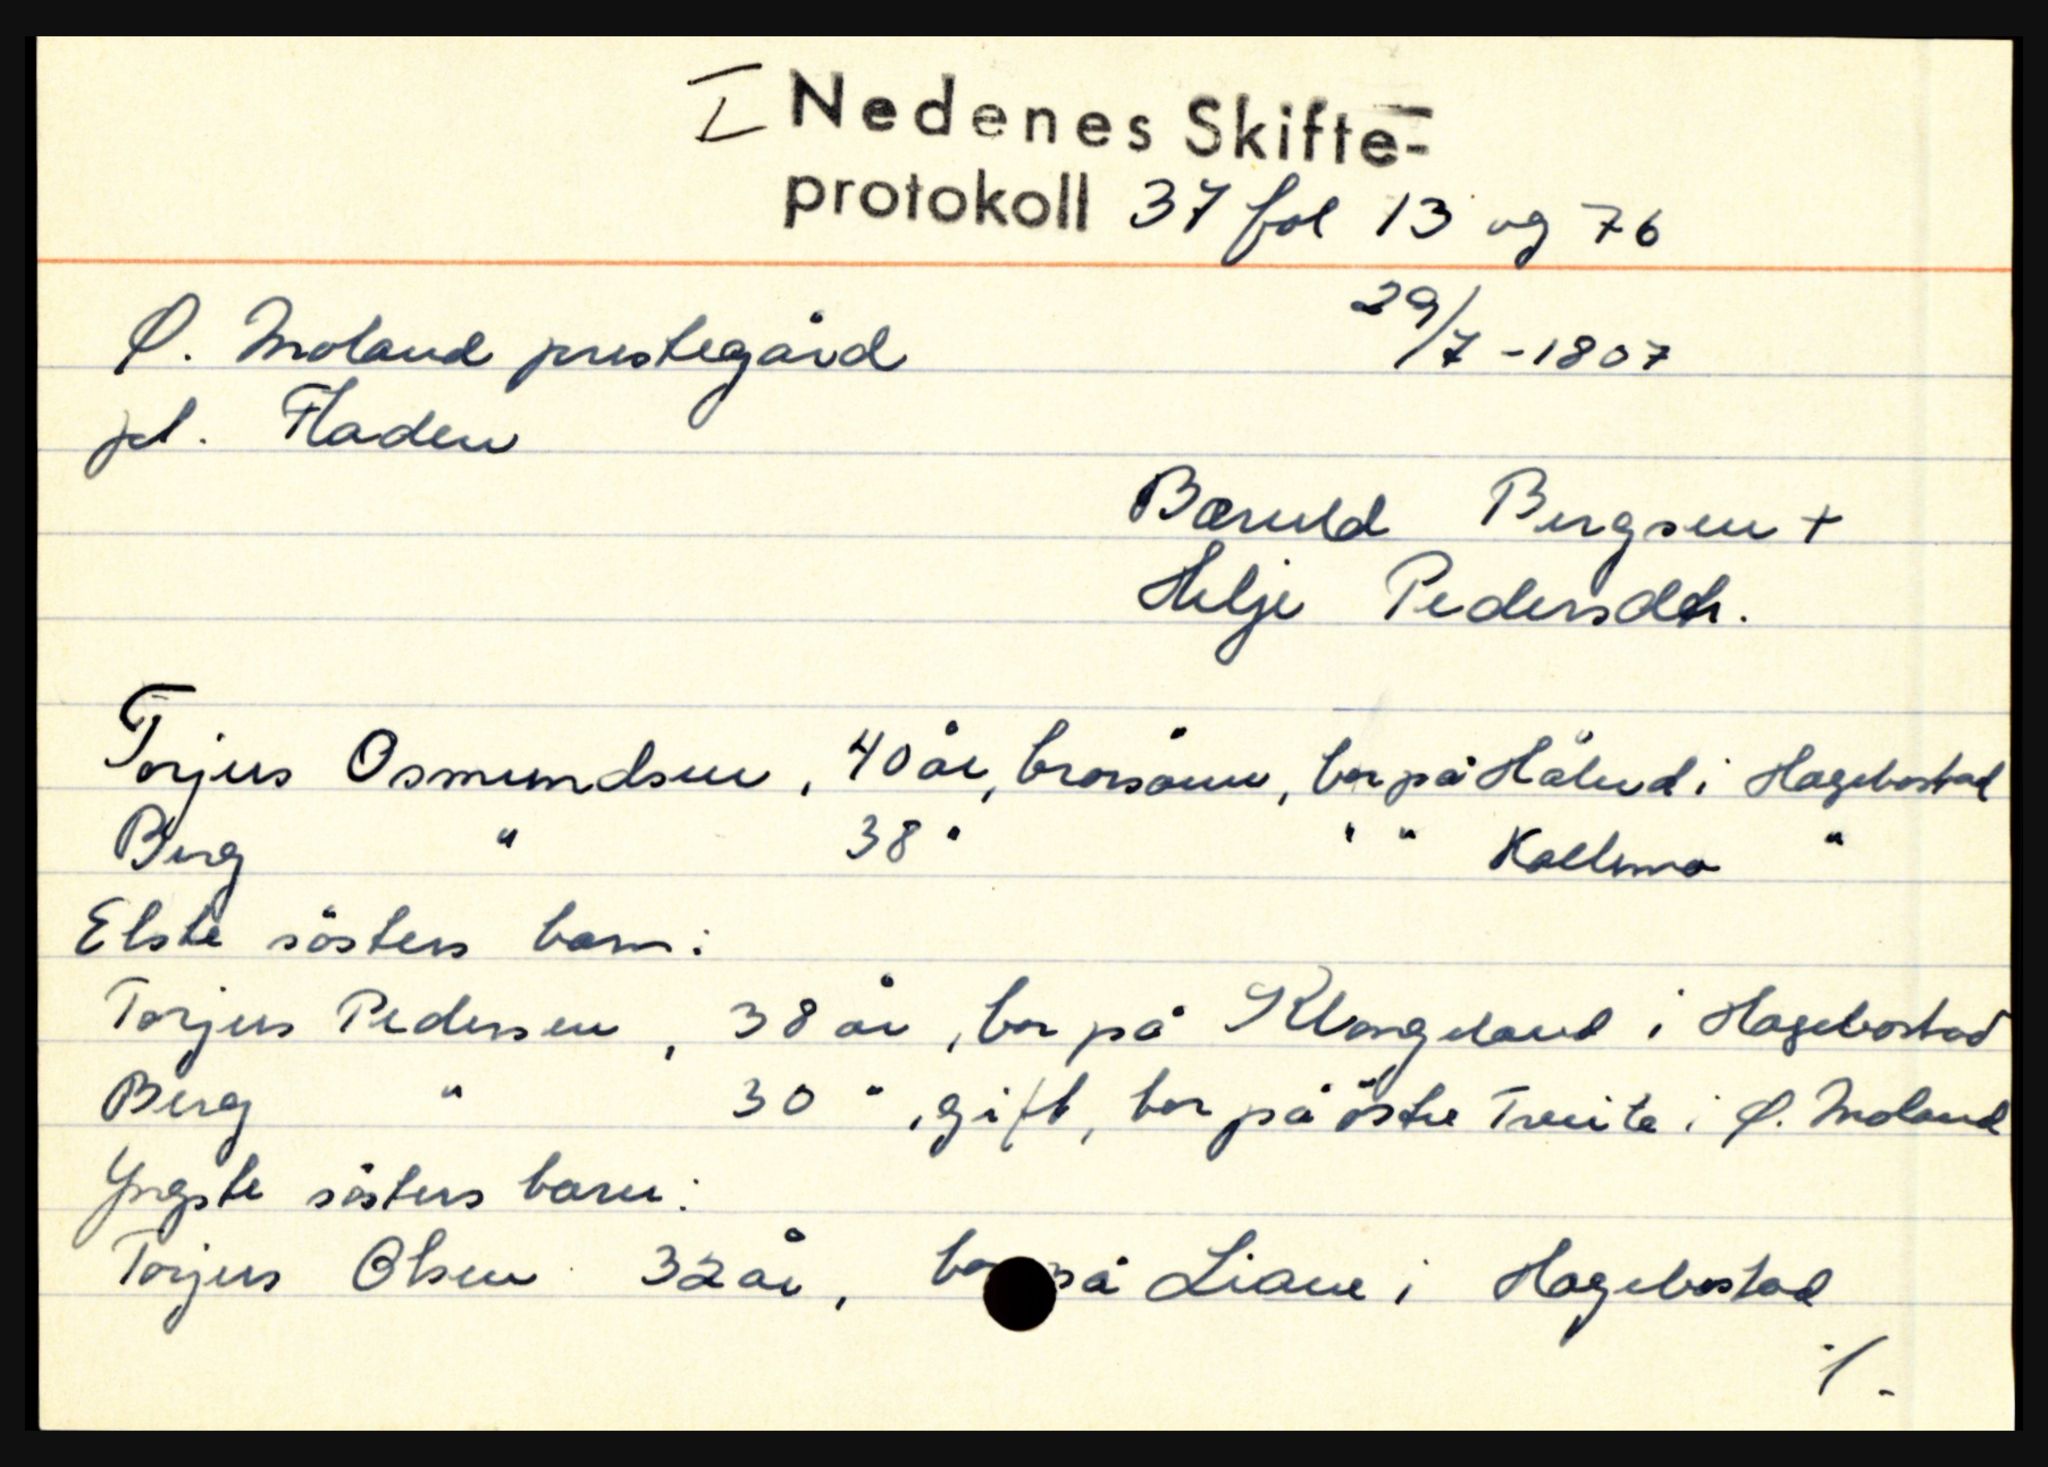 I Nedenes Skifte-
protokoll 37 fol 13 og 76
Ø. Moland prestegård 29/7-1807
pl. Fladen
Bæruld Bergsen +
Helje Pedersdtr.
Torjus Osmundsen, 40 år, brorsønn, bor på Håland i Hagebostad
Berg " 38 " " " Kollemo "
Elste søsters barn:
Torjus Pedersen, 38 år, bor på Klungeland i Hagebostad
Berg " 30 ", gift, bor på østre Tveite i Ø. Moland
Yngste søsters barn:
Torjus Olsen 32 år, bor på Liane i Hagebostad
./.